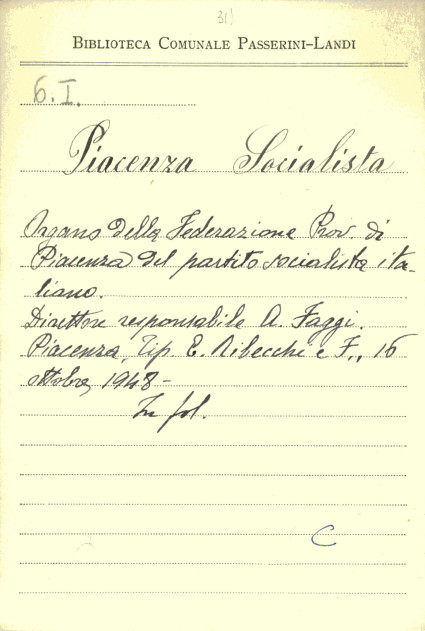 31)
BIBLIOTECA COMUNALE PASSERINI-LANDI
6. I.
Piacenza Socialista
Organo della Federazione Prov. di
Piacenza del partito socialista ita-
liano.
Direttore responsabile A. Faggi.
Piacenza, Tip. E. Ribecchi e F., 16
ottobre, 1948-
In fol.
C